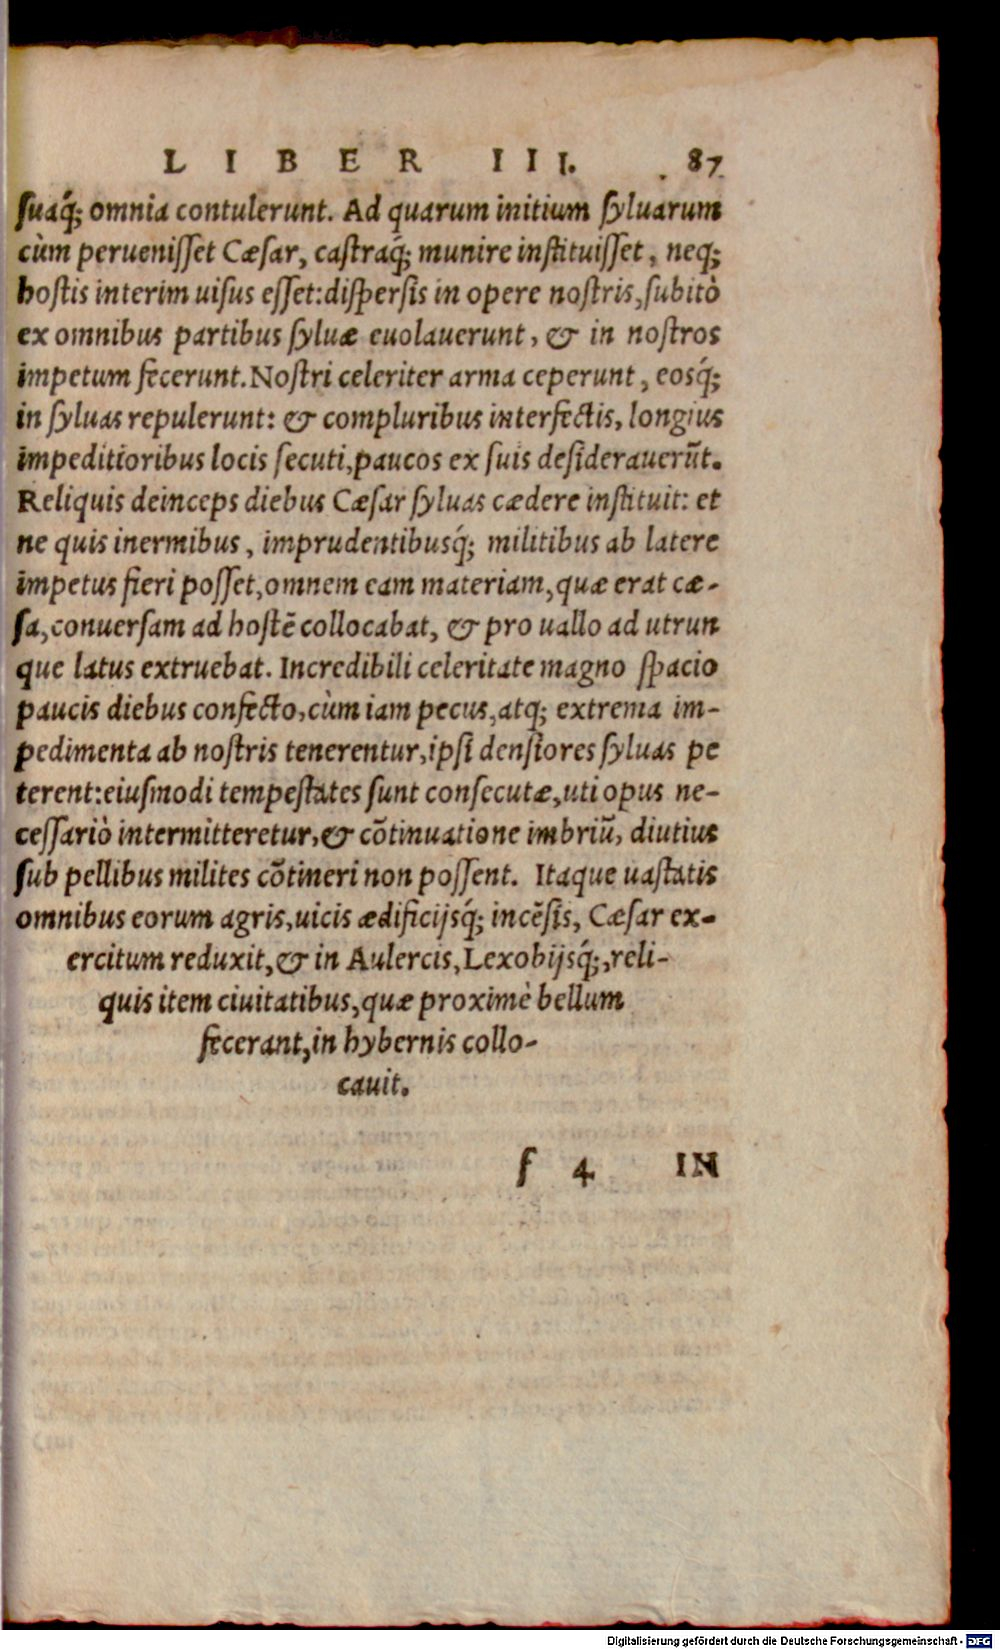 LIBER III. 87
ſuaq́; omnia contulerunt. Ad quarum initium ſyluarum
cùm perueniſſet Cæſar, caſtraq́; munire inſtituiſſet, neq;
hostis interim uiſus eſſet: diſperſis in opere noſtris, ſubitò
ex omnibus partibus ſyluæ euolauerunt, & in noſtros
impetum fecerunt. Noſtri celeriter arma ceperunt, eosq́;
in ſyluas repulerunt: & compluribus interfectis, longius
impeditioribus locis ſecuti, paucos ex ſuis deſiderauerũt.
Reliquis deinceps diebus Cæſar ſyluas cædere inſtituit: et
ne quis inermibus, imprudentibusq́; militibus ab latere
impetus fieri poſſet, omnem eam materiam, quæ erat cæ-
ſa, conuerſam ad hoſtē collocabat, & pro uallo ad utrun
que latus extruebat. Incredibili celeritate magno ſpacio
paucis diebus confecto, cùm iam pecus, atq; extrema im-
pedimenta ab noſtris tenerentur, ipſi denſiores ſyluas pe
terent: eiuſmodi tempeſtates ſunt conſecutæ, uti opus ne-
ceſſariò intermitteretur, & cõtinuatione imbriũ, diutius
ſub pellibus milites cõtineri non poſſent. Itaque uaſtatis
omnibus eorum agris, uicis ædificijsq́; incẽſis, Cæſar ex-
ercitum reduxit, & in Aulercis, Lexobijsq́;, reli-
quis item ciuitatibus, quæ proximè bellum
fecerant, in hybernis collo-
cauit.
f 4 IN
Digitalisierung gefördert durch die Deutsche Forschungsgemeinschaft - DFG